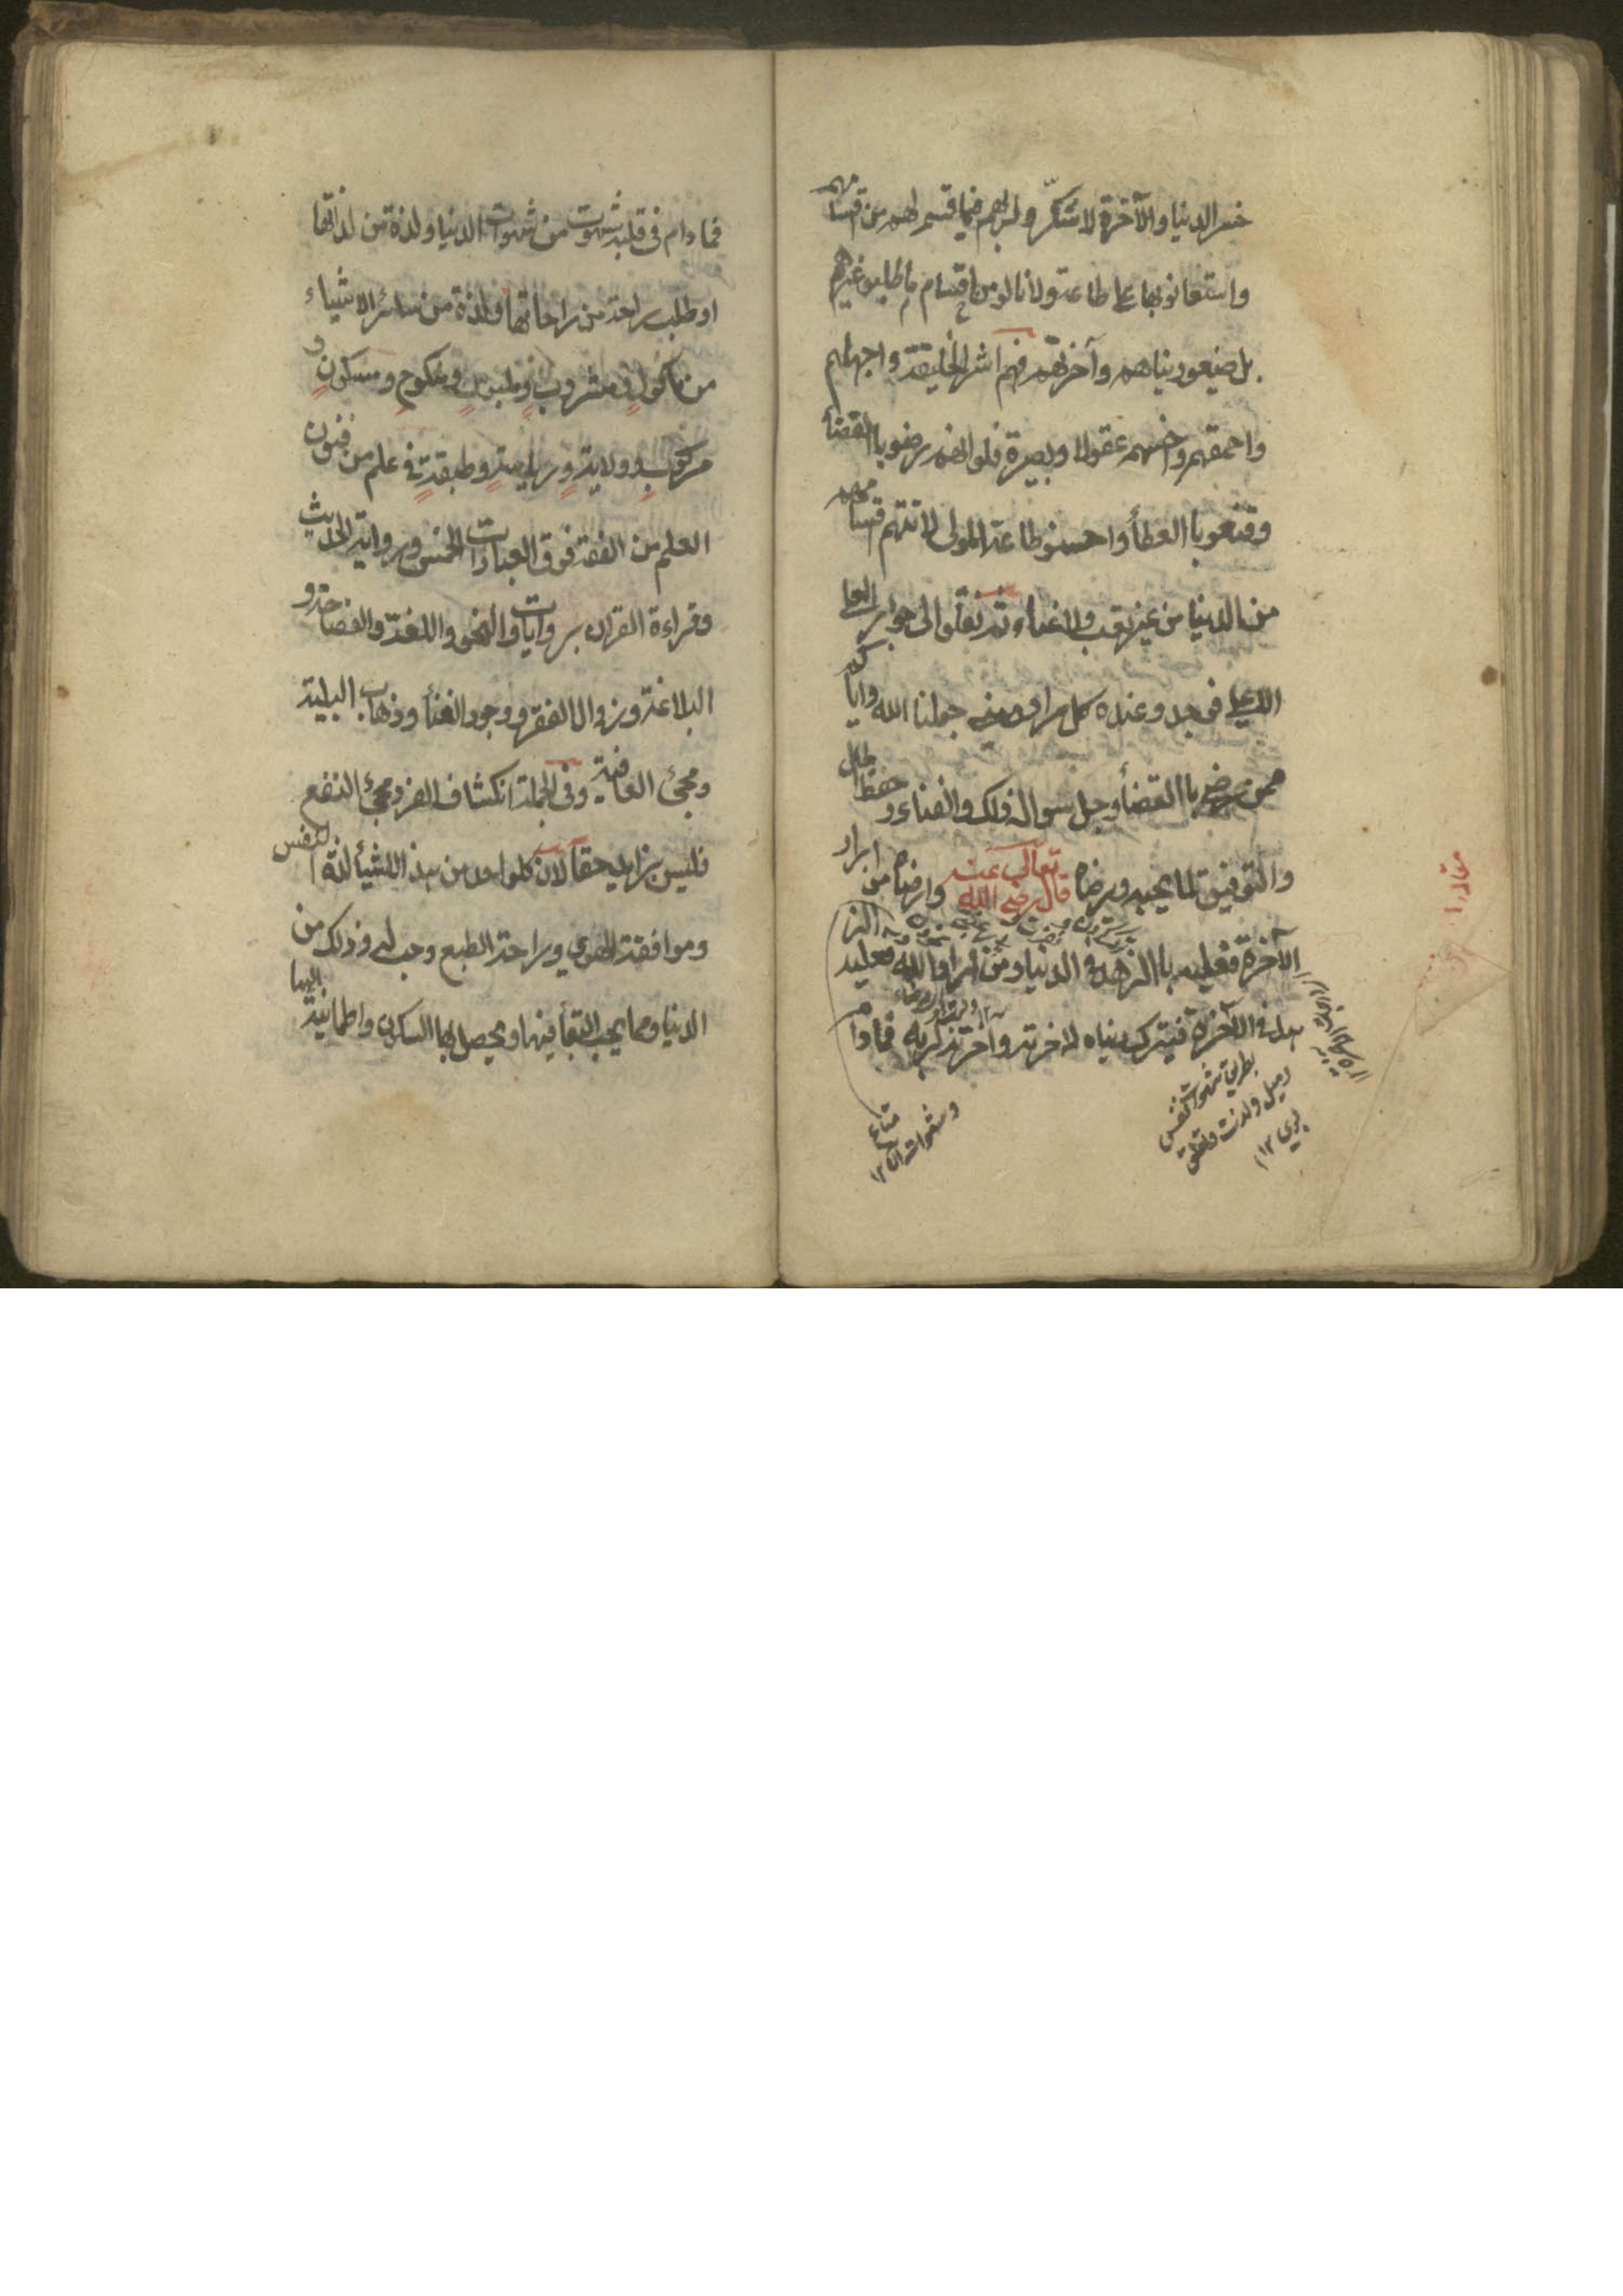 خسر الدنيا والآخرة لا شكر ولربهم فيما قسم لهم من اقسامهم
واستعانو بها على طاعته ولا نالو من اقسام ما طلبو غيرهم
بل ضيعو دنياهم وآخرتهم فهم اشر الخليقة واجهلهم
واحمقهم واخسهم عقولا وبصيرة فلو انهم رضو باالقضأ
وقنعو باالعطأ واحسنو طاعة المولى لاتتهم اقسامهم
من الدنيا من غير تعب ولا عناء ثم نقلو الى جوار العلي
الاعلى فوجدو عنده كل مراد جعلنا الله واياكم
ممن رضي باالقضأ وجعل سواله ذلك والفناء وحفظ الحال
والتوفيق لما يحبه ويرضاه قال رضي الله تعالى عنه من اراد
الآخرة فعليه باالزهد في الدنيا ومن اراد الله فعليه
بالزهد في الآخرة فيترك دنياه لاخرته واخرته لربه فما دام
بطريق شهوات نفس
وشهوات
متاع
فما دام في قلبه شهوت من شهوات الدنيا ولذة من لذاتها
او طلب راحة من راحاتها ولذة من سائر الاشياء
من ماكول ومشروب وملبوس ومنكوح ومسكون و
مركوب وولاية ورياسة وطبقة في علم من فنون
العلم من الفقه فوق العبادات الخمس ورواية الحديث
وقراءة القران بروايات والنحو واللغة والفصاحة و
البلاغة وزوال الفقر ووجود الغنأ وذهاب البلية
ومجئ العافية وفي الجملة انكشاف الضر ومجئ النفع
فليس بزاهد حقا لان كلو احد من هذا الشيأ لذة النفس
وموافقة الهوي وراحة الطبع وحب له وذلك من
الدنيا ومما يحب البقأ فيها ويحصل بها السكون واطمانية اليها